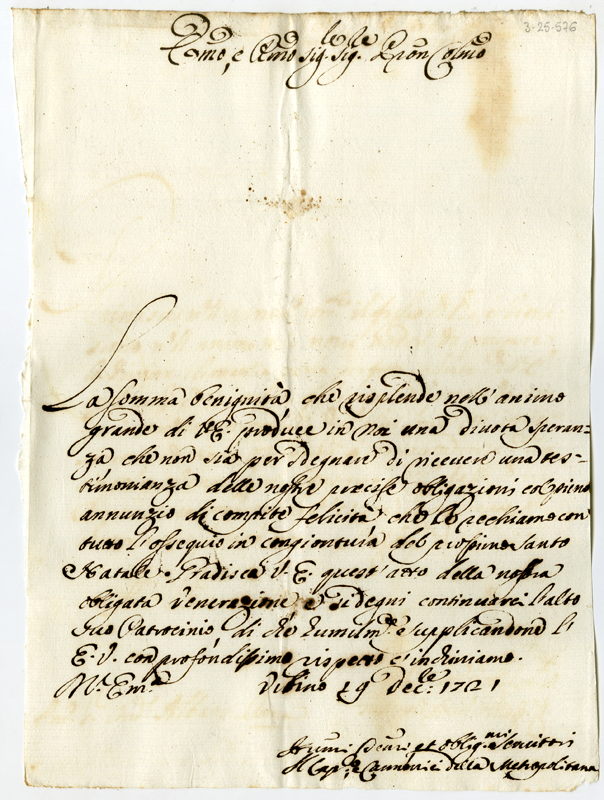 3-25-576
Emo, e Rmo Sig.r Sig.r Pron Colmo
La somma benignità che risplende nell'animo
grande di V.E. produce in noi una divota speran=
za che non sia per sdegnare di ricevere una tes=
timonianza delle nostre precise obligazioni col pieno
annunzio di compite felicità che le rechiamo con
tutto l'ossequio in congiontura del prossimo Santo
Natale. Gradisca V. E. quest'atto della nostra
obligata venerazione e si degni continuarci l'alto
suo Patrocinio, di che humilm.te supplicandone l'
E. V. con profondissimo rispetto c'inchiniamo.
Urbino 19 Dec.re 1721
Humi Devmi et oblig.mi Servitori
Il Cap.o e Cannonici della Metropolitana